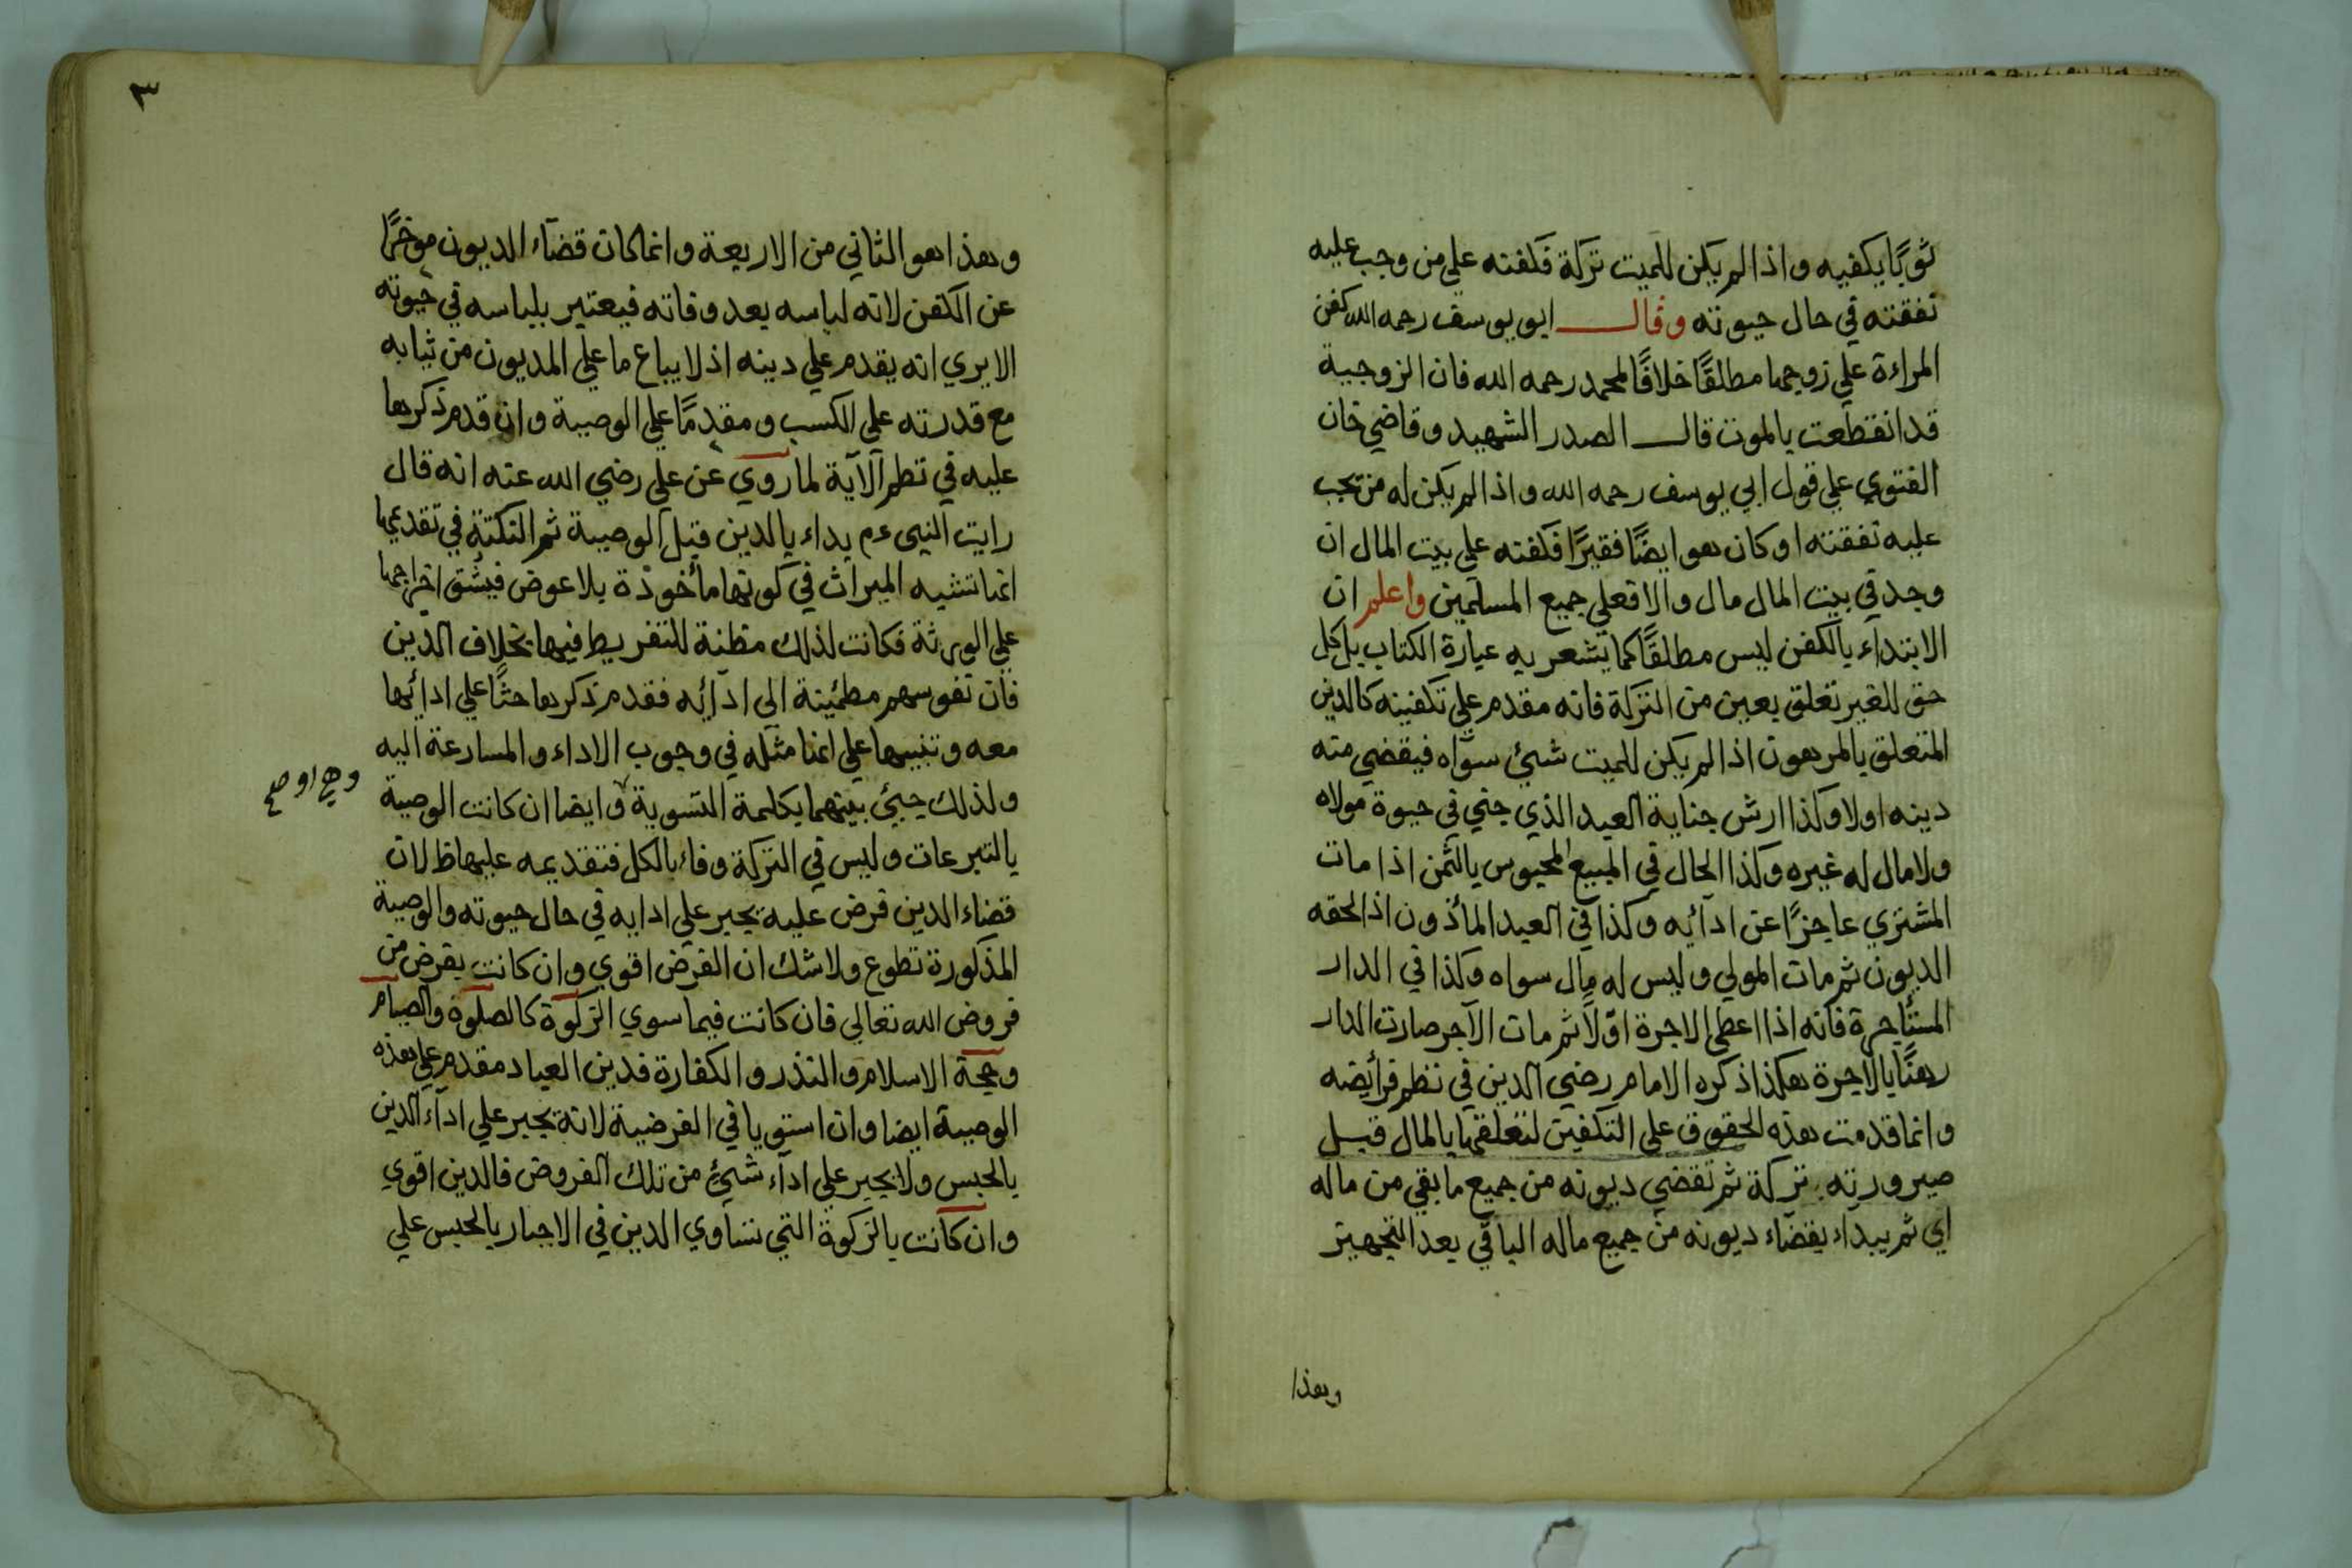 ثوبًا يكفيه واذا لم يكن للميت تركة فكفنه علي من وجب عليه
نفقته في حال حيوته وقال ابو يوسف رحمه الله كفن
المراءة علي زوجها مطلقًا خلافًا لمحمد رحمه الله فان الزوجية
قد انقطعت بالموت قال الصدر الشهيد وقاضي خان
الفتوي علي قول ابي يوسف رحمه الله واذا لم يكن له من تجب
عليه نفقته او كان هو ايضًا فقيرًا فكفنه علي بيت المال ان
وجد في بيت المال مال والا فعلي جميع المسلمين واعلم ان
الابتداء بالكفن ليس مطلقًا كما يشعر به عبارة الكتاب بل كل
حق للغير تعلق بعين من التركة فانه مقدم علي تكفينه كالدين
المتعلق بالمرهون اذا لم يكن للميت شئ سواه فيقضي منه
دينه اولا وكذا ارش جناية العبد الذي جني في حيوة مولاه
ولا مال له غيره وكذا الحال في المبيع المحبوس بالثمن اذا مات
المشتري عاجزًا عن ادآئه وكذا في العبد المأذون اذا لحقه
الديون ثم مات المولي وليس له مال سواه وكذا في الدار
المستأجرة فانه اذا اعطي الاجرة اوّلاً ثم مات الآجر صارت الدار
رهنًا بالاجرة هكذا ذكره الامام رضي الدين في نظم فرأيضه
وانما قدمت هذه الحقوق علي التكفين لتعلقها بالمال قبل
صيرورته تركة ثم تقضي ديونه من جميع ما بقي من ماله
اي ثم يبداء بقضاء ديونه من جميع ماله الباقي بعد التجهيز
وهذا
٣
وهذا هو الثاني من الاربعة وانما كان قضآء الديون موخرًا
عن الكفن لانه لباسه بعد وفاته فيعتبر بلباسه في حيوته
الا يري انه يقدم علي دينه اذ لا يباع ما علي المديون من ثيابه
مع قدرته علي الكسب ومقدمًا علي الوصية وان قدم ذكرها
عليه في نظم الآية لما روي عن علي رضي الله عنه انه قال
رايت النبي عم بداء بالدين قبل الوصية ثم النكتة في تقديمها
انما تشبه الميراث في كونها مأخوذة بلا عوض فيشق اخراجها
علي الورثة فكانت لذلك مظنة للتفريط فيها بخلاف الدين
فان نفوسهم مطمئنة الي ادآئه فقدم ذكرها حثًا علي ادائها
معه وتنبيها علي انها مثله في وجوب الاداء والمسارعة اليه
ولذلك جيئ بينهما بكلمة التسوية وايضا ان كانت الوصية
وهي او صح
بالتبرعات وليس في التركة وفاء بالكل فتقديمه عليها ظ لان
قضاء الدين فرض عليه يجبر علي ادايه في حال حيوته والوصية
المذكورة تطوع ولا شك ان الفرض اقوي وان كانت بفرض من
فروض الله تعالي فان كانت فيما سوي الزكوة كالصلوة والصيام
وحجة الاسلام والنذر والكفارة فدين العباد مقدم علي هذه
الوصية ايضا وان استويا في الفرضية لانه يجبر علي ادآء الدين
بالحبس ولا يجبر علي ادآء شئ من تلك الفروض فالدين اقوي
وان كانت بالزكوة التي تساوي الدين في الاجبار بالحبس علي